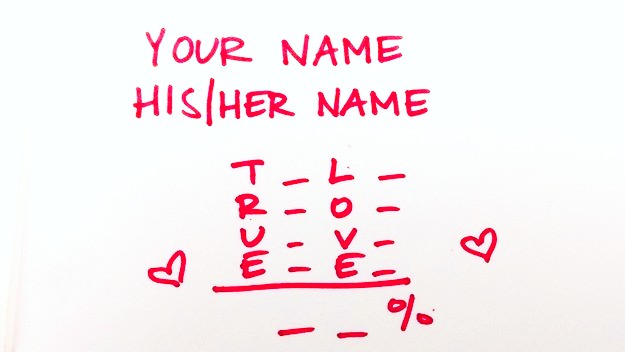 YOUR NAME
HIS/HER NAME
T _ L _
R _ O _
U _ V _
E _ E _
_ _ %